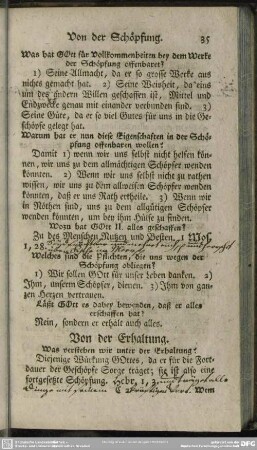 Von der Schöpfung. 35
Was hat GOtt für Vollkommenheiten bey dem Werke
der Schöpfung offenbaret?
1) Seine Allmacht, da er so grosse Werke aus
nichts gemacht hat. 2) Seine Weisheit, da eins
um des andern Willen geschaffen ist, Mittel und
Endzwecke genau mit einander verbunden sind. 3)
Seine Güte, da er so viel Gutes für uns in die Ge-
schöpfe gelegt hat.
Warum hat er nun diese Eigenschaften in der Schö-
pfung offenbaren wollen?
Damit 1) wenn wir uns selbst nicht helfen kön-
nen, wir uns zu dem allmächtigen Schöpfer wenden
könnten. 2) Wenn wir uns selbst nicht zu rathen
wissen, wir uns zu dem allweisen Schöpfer wenden
könnten, daß er uns Rath ertheile. 3) Wenn wir
in Nöthen sind, uns zu dem allgütigen Schöpfer
wenden könnten, um bey ihm Hülfe zu finden.
Wozu hat GOtt alles geschaffen?
Zu des Menschen Nutzen und Besten, 1 Mos.
1, 28.
Welches sind die Pflichten, die uns wegen der
Schöpfung obliegen?
1) Wir sollen GOtt für unser Leben danken. 2)
Ihm, unserm Schöpfer, dienen. 3) Ihm von gan-
zen Herzen vertrauen.
Läßt GOtt es dabey bewenden, daß er alles
erschaffen hat?
Nein, sondern er erhält auch alles.
Von der Erhaltung.
Was verstehen wir unter der Erhaltung?
Diejenige Würkung GOttes, da er für die Fort-
dauer der Geschöpfe Sorge träget; sie ist also eine
fortgesetzte Schöpfung. Hebr. 1, 3.
C 2 Wem